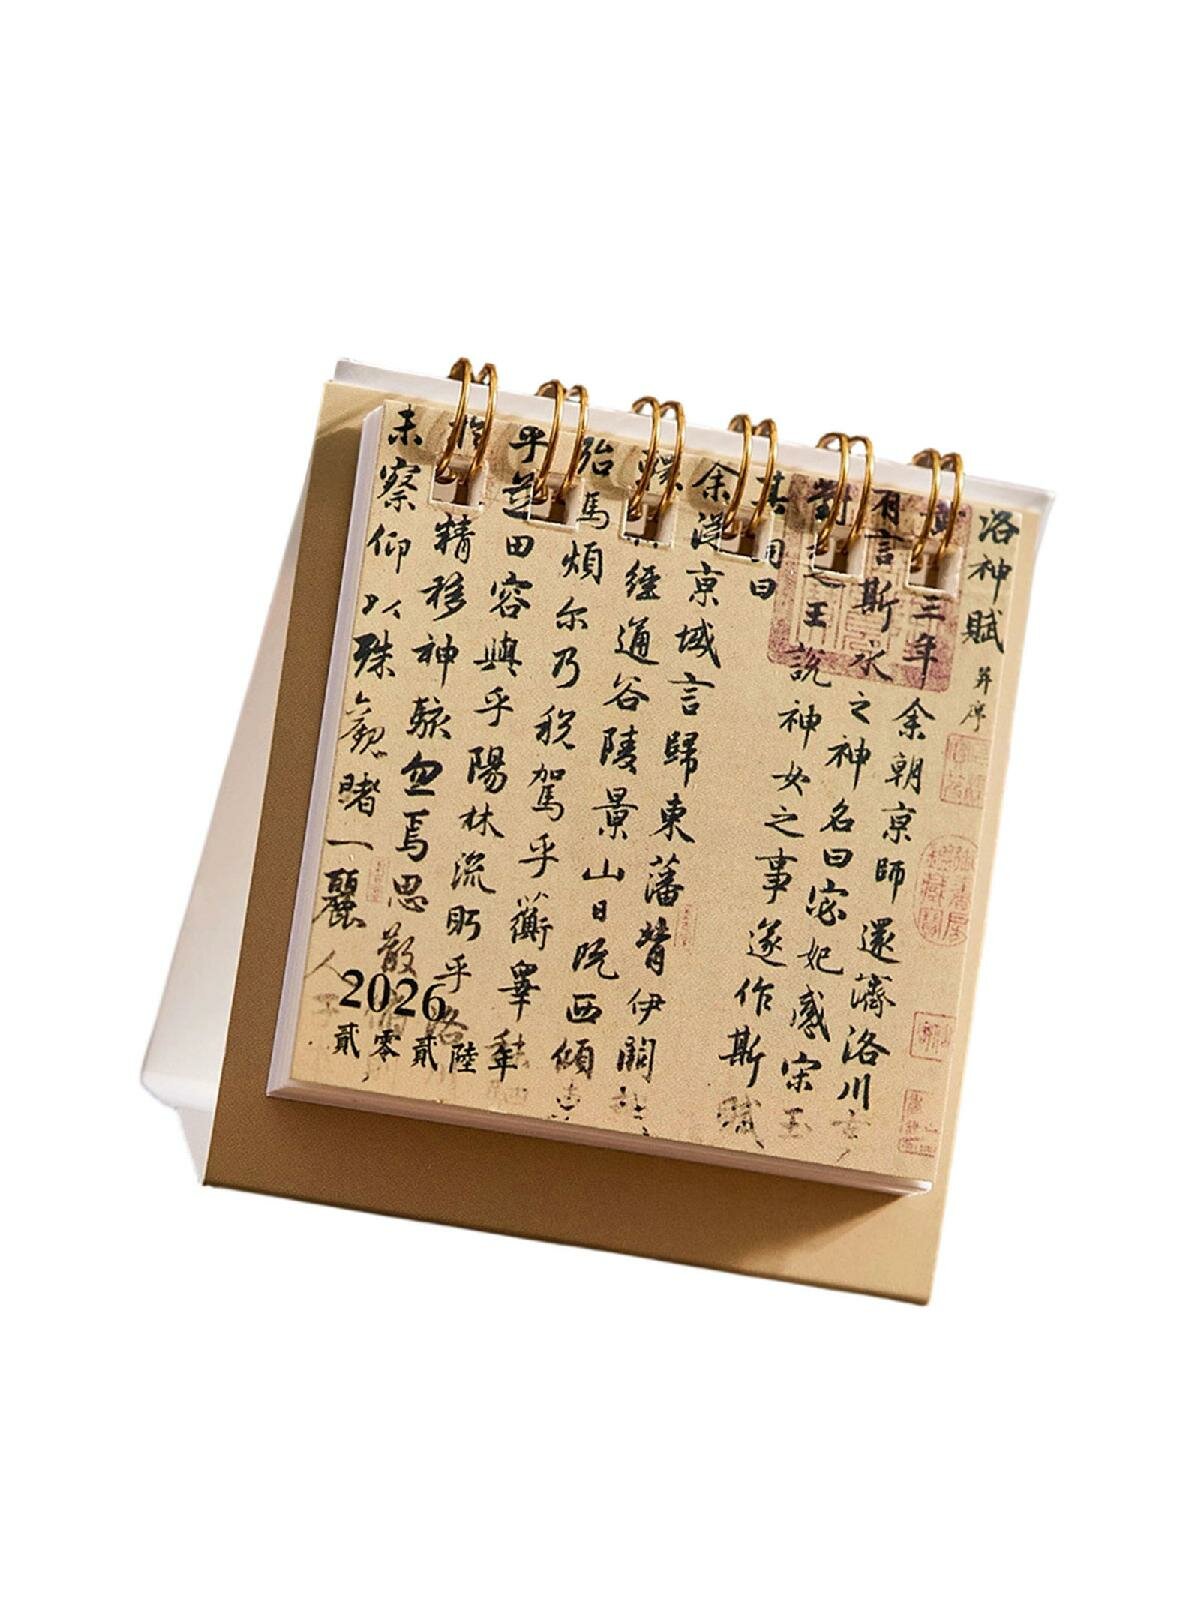 洛神賦 并序
黄三年余朝京師還濟洛川古
有言斯水之神名曰宓妃感宋玉
對王說神女之事遂作斯賦
其曰
余京域言歸東藩背伊闕
經通谷陵景山日既西傾車
殆馬煩尔乃稅駕乎蘅皋秣
乎芝田容與乎陽林流眄乎洛
精移神駭忽焉思散俯
未察仰以殊觀睹一麗人于
2026
貳零貳陸年